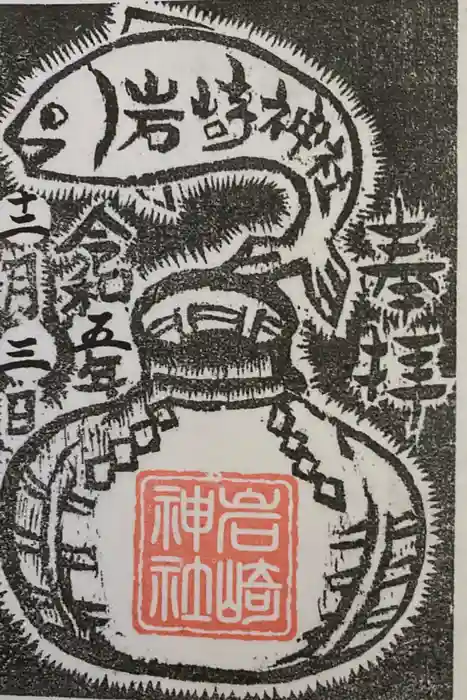 岩崎神社
奉拝
令和五年
十二月三日
岩崎
神社